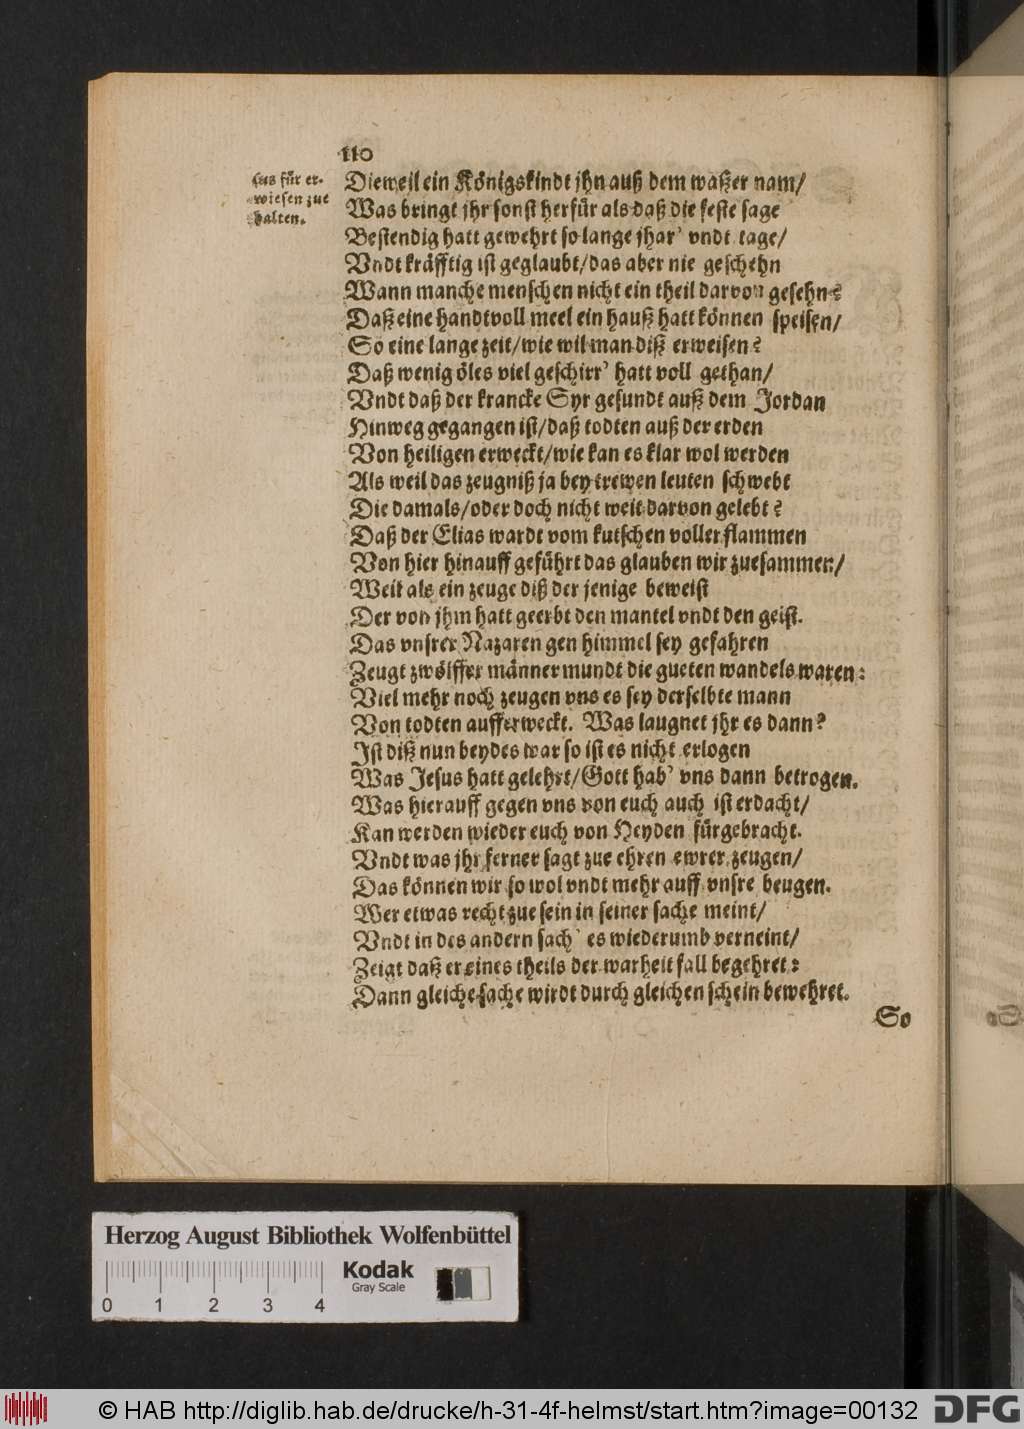 110
sus für er-
wiesen zue
halten.
Dieweil ein Königskindt jhn auß dem waßer nam/
Was bringt jhr sonst herfür als daß die feste sage
Bestendig hatt gewehrt so lange jhar' vndt tage/
Vndt kräfftig ist geglaubt/das aber nie geschehn
Wann manche menschen nicht ein theil darvon gesehn?
Daß eine handtvoll meel ein hauß hatt können speisen/
So eine lange zeit/wie wil man diß erweisen?
Daß wenig öles viel geschirr' hatt voll gethan/
Vndt daß der krancke Syr gesundt auß dem Jordan
Hinweg gegangen ist/daß todten auß der erden
Von heiligen erweckt/wie kan es klar wol werden
Als weil das zeugniß ja bey trewen leuten schwebt
Die damals/oder doch nicht weit darvon gelebt?
Daß der Elias wardt vom kutschen voller flammen
Von hier hinauff geführt das glauben wir zuesammen/
Weil als ein zeuge diß der jenige beweist
Der von jhm hatt geerbt den mantel vndt den geist.
Das vnsrer Nazaren gen himmel sey gefahren
Zeugt zwölffer männer mundt die gueten wandels waren:
Viel mehr noch zeugen vns es sey derselbte mann
Von todten aufferweckt. Was laugnet jhr es dann?
Ist diß nun beydes war so ist es nicht erlogen
Was Jesus hatt gelehrt/Gott hab' vns dann betrogen.
Was hierauff gegen vns von euch auch ist erdacht/
Kan werden wieder euch von Heyden fürgebracht.
Vndt was jhr ferner sagt zue ehren ewrer zeugen/
Das können wir so wol vndt mehr auff vnsre beugen.
Wer etwas recht zue sein in seiner sache meint/
Vndt in des andern sach' es wiederumb verneint/
Zeigt daß er eines theils der warheit fall begehret:
Dann gleiche sache wirdt durch gleichen schein bewehret.
So
Herzog August Bibliothek Wolfenbüttel
Kodak
Gray Scale
0 1 2 3 4
© HAB http://diglib.hab.de/drucke/h-31-4f-helmst/start.htm?image=00132
DFG